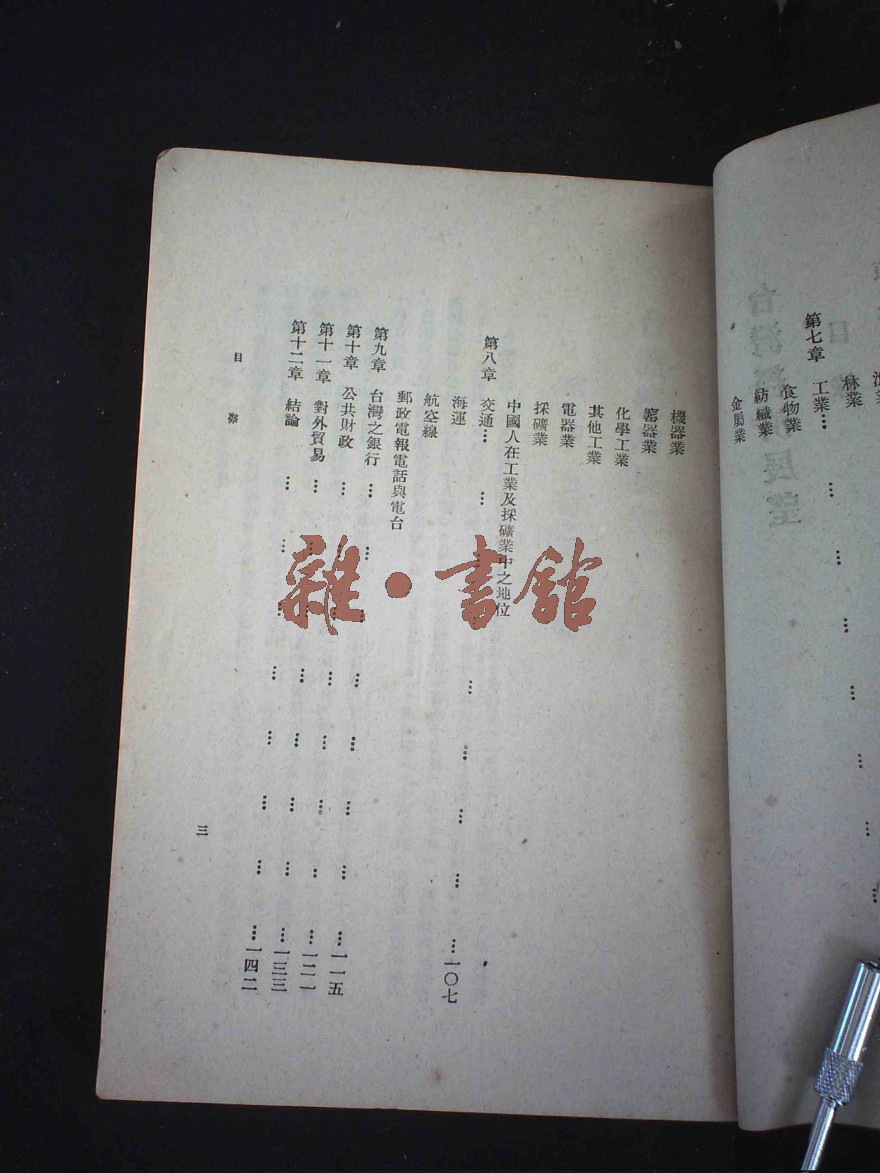 林業
第七章　工業…………………
食物業
紡織業
金屬業
機器業
窰器業
化學工業
其他工業
電器業
採礦業
中國人在工業及採礦業中之地位
第八章　交通…………………一〇七
海運
航空線
郵政電報電話與電台
第九章　台灣之銀行…………………一一五
第十章　公共財政…………………一二一
第十一章　對外貿易…………………一三三
第十二章　結論…………………一四二
目
三
雜·書館